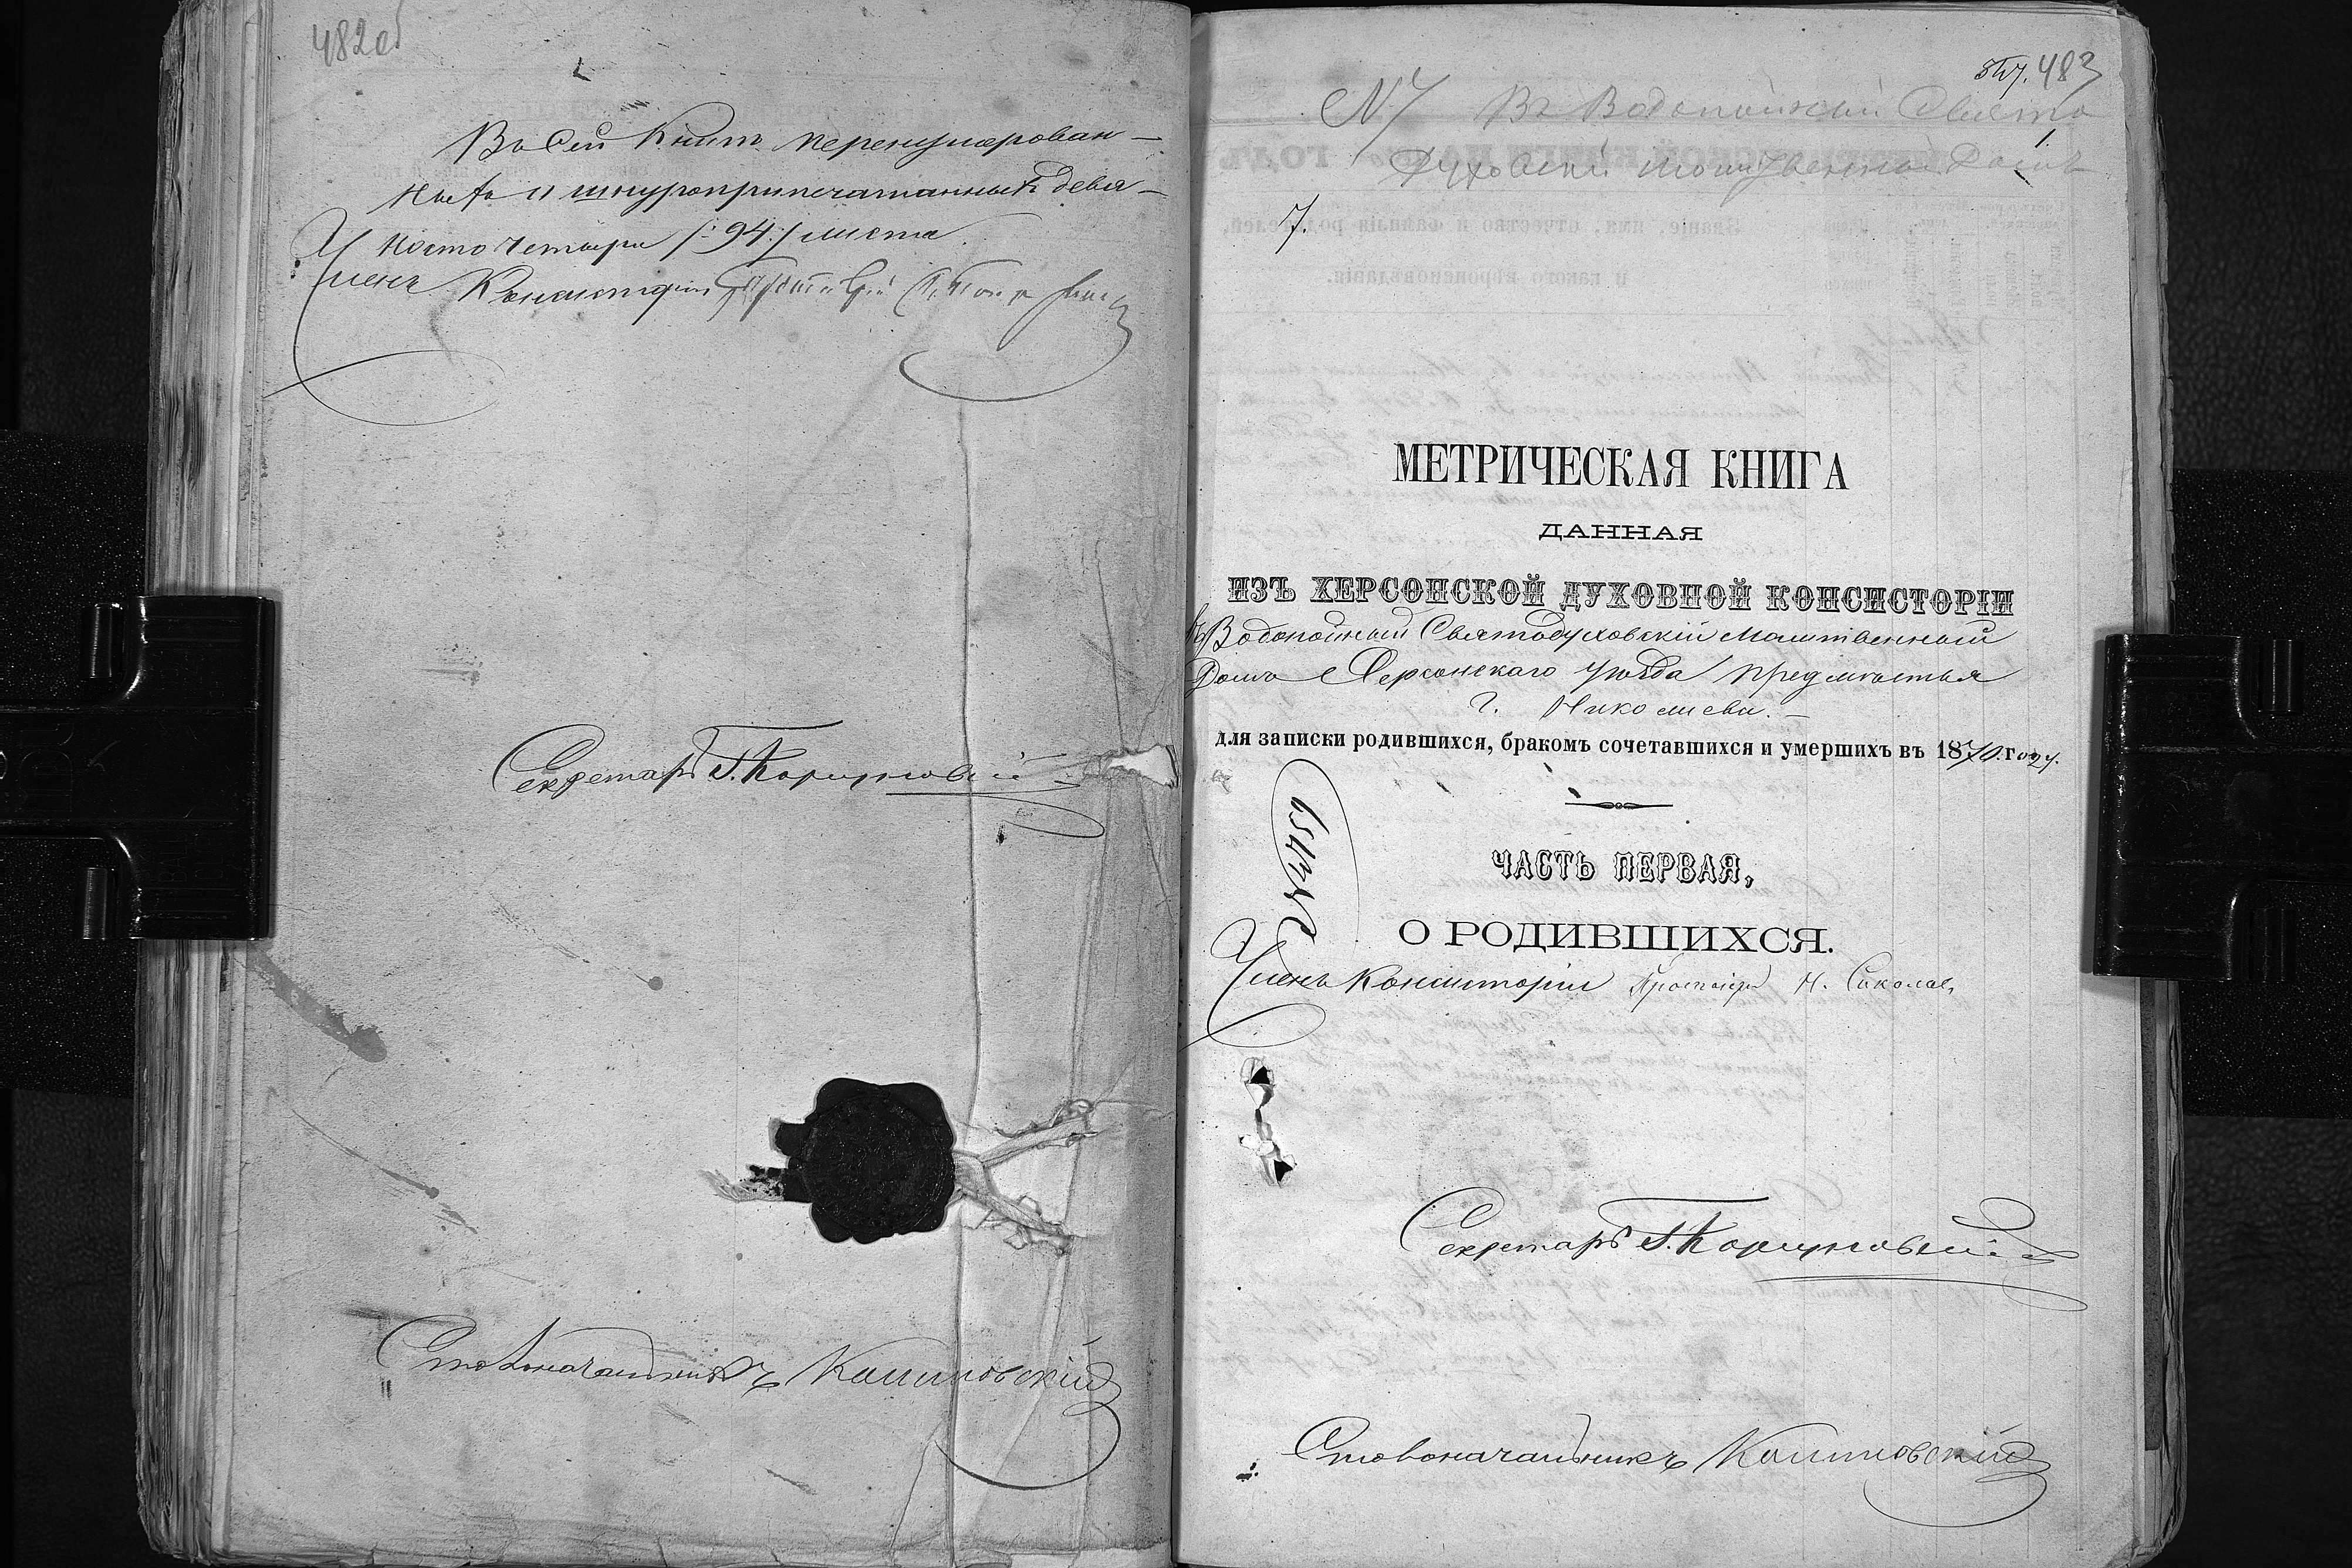 482об
Въ сей Книгѣ перенумерован-
ныхъ и шнуроприпечатанныхъ девя-
носто четыре /:94:/ листа.
Членъ Консисторіи Протоіерей
Секретарь Г.
Столоначальникъ Калиновскій
483
№ 7 Въ Водопойный Свято
1.
Духовскій молитвенный Домъ
7.
МЕТРИЧЕСКАЯ КНИГА
ДАННАЯ
ИЗЪ ХЕРСОНСКОЙ ДУХОВНОЙ КОНСИСТОРІИ
въ Водопойный Святодуховскій Молитвенный
Домъ Херсонскаго уѣзда предмѣстья
г. Николаева.-
для записки родившихся, бракомъ сочетавшихся и умершихъ въ 1870 году.
ЧАСТЬ ПЕРВАЯ,
О РОДИВШИХСЯ.
Членъ Консисторіи Протоіерей Н. Соколовъ
Секретарь Г.
Столоначальникъ Калиновскій